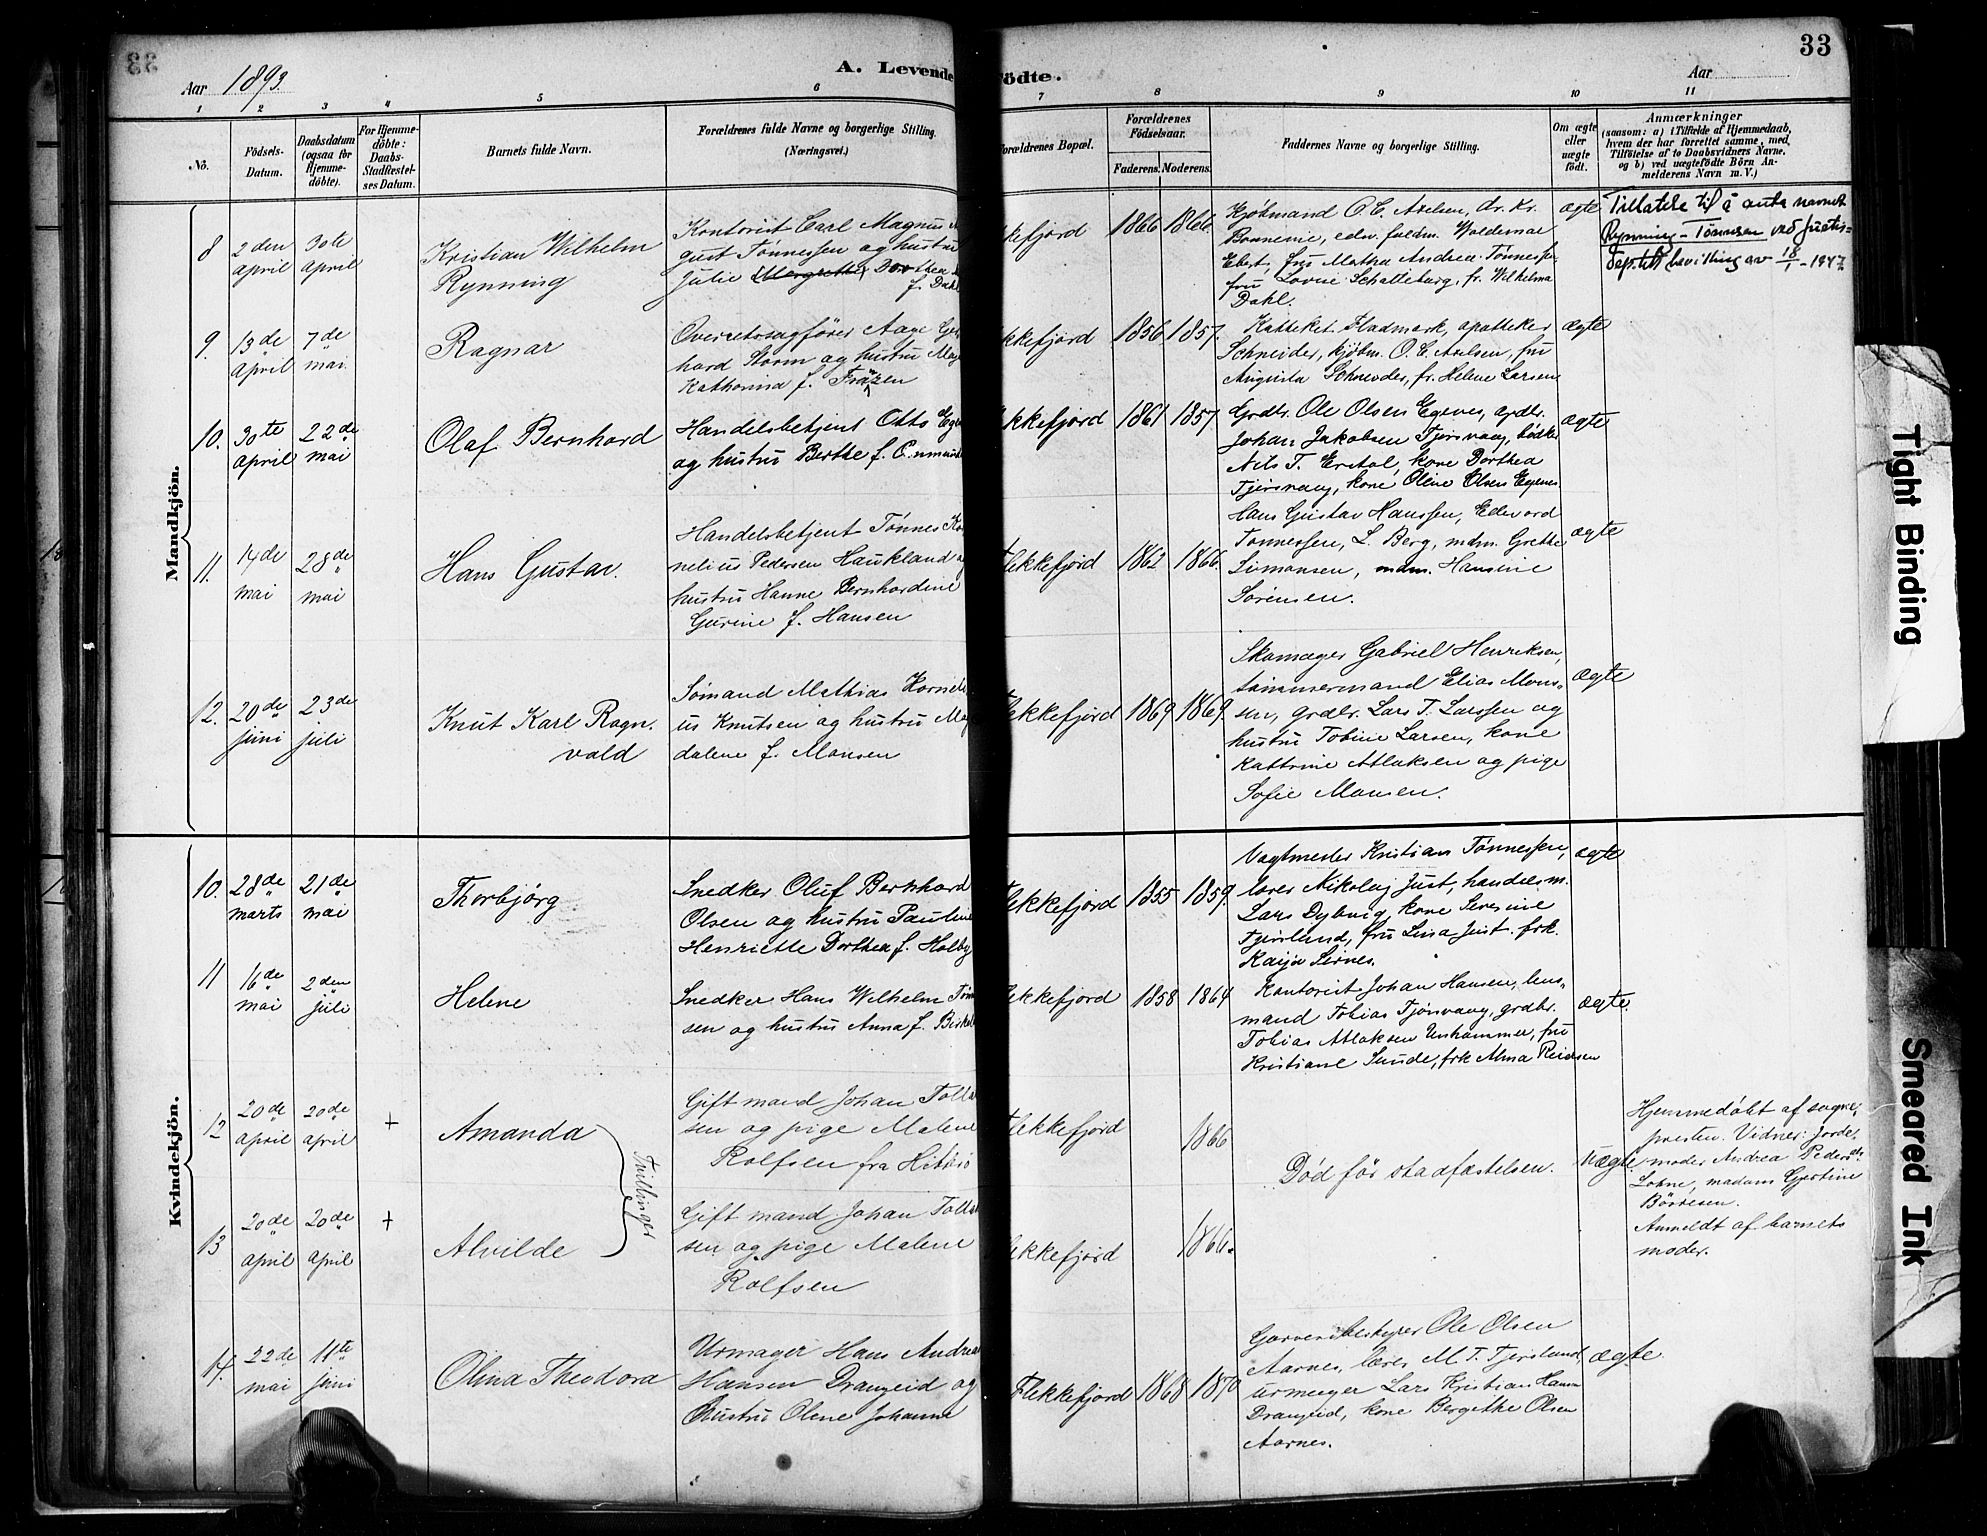 33
Aar 1893.
A. Levende
Födte.
Aar
33
1 2 3 4 5 6 7 8 9 10 11
No.
Födsels-
Datum.
Daabsdatum
(ogsaa for
Hjemme-
döbte).
For Hjemme-
döbte:
Daabs-
Stadfæstel-
ses Datum.
Barnets fulde Navn.
Forældrenes fulde Navne og borgerlige Stilling.
(Næringsvei.)
Forældrenes Bopæl.
Forældrenes
Födselsaar.
Faderens. Moderens.
Faddernes Navne og borgerlige Stilling.
Om ægte
eller
uægte
födt.
Anmærkninger
(saasom: a) i Tilfælde af Hjemmedaab,
hvem der har forrettet samme, med
Tilföielse af to Daabsvidners Navne,
og b) ved uægtefödte Börn An-
melderens Navn m. V.)
Mandkjön.
8
2den
april
30te
april
Kristian Wilhelm
Rynning
Kontorist Carl Magnus
gust Tønnessen og hustru
Julie Margrethe Dorthea
f. Dahl
kkefjord
1866
1866
Kjøbmand O. C. Axelsen, dr. Kr.
Bonnevie, edv. fuldm. Woldemar
Ebert, fru Matha Andrea Tønnessen
fru Lovise Schatteburg, fr. Wilhelma
Dahl.
ægte
Tillatelse til å anta navnet
Rynning-Tønnesen ved Justis-
dep.tets bevilling av 18/1-1947
9.
13de
april
7de
mai
Ragnar
Overretssagfører Aage Ger
hard Storm og hustru Mar
Katharina f. Franzen
kkefjord
1856
1857.
Kateket Fladmark, apotheker
Schneider, kjøbm. O. C. Axelsen, fru
Augusta Schneider, fr. Helene Larsen
ægte
10.
30te
april
22de
mai
Olaf Bernhard
Handelsbetjent Otto Egen
og hustru Berthe f.
kkefjord
1861
1857
Grdbr. Ole Olsen Egenes, grdbr.
Johan Jakobsen Tjørsvaag, bødker
Nils T. Ersdal, kone Dorthea
Tjørsvaag, kone Oline Olsen Egenes
ægte
11.
14de
mai
28de
mai
Hans Gustav.
Handelsbetjent Tønnes Kor
nelius Pedersen Haukland og
hustru Hanne Bernhardine
Gurine f. Hansen
Flekkefjord
1862
1866.
Hans Gustav Hanssen, Edevard
Tønnessen, L. Berg, mdm. Grethe
Simonsen, mdm. Hansine
Sørensen.
ægte
12.
20de
juni
23de
juli
Knut Karl Ragn-
vald
Sømand Mathias Korneli
us Knutsen og hustru Mag
dalene f. Monsen
Flekkefjord
1869
1869.
Skomager Gabriel Henriksen,
tømmermand Elias Mons-
sen, grdbr. Lars T. Larssen og
hustru Tobine Larsen, kone
Kathrine Atlaksen og pige
Sofie Monsen.
ægte
Kvindekjön.
10.
28de
marts
21de
mai
Thorbjørg
Snedker Oluf Bernhard
Olsen og hustru Pauline
Henriette Dorthea f. Holby
Flekkefjord
1855
1859.
Vagtmester Kristian Tønnessen,
lærer Nikolaj Just, handelsm.
Lars Dybvig, kone Severine
Tjørsland, fru Lina Just. frk.
Kaija Sirnes.
ægte
11
16de
mai
2den
juli
Helene
Snedker Hans Wilhelm Tønn
sen og hustru Anna f. Birkel
Flekkefjord
1858
1864
Kontorist Johan Hansen, lens-
mand Tobias Tjørsvaag, grdbr.
Tobias Atlaksen Unhammer, fru
Kristiane Sunde, frk Alma Reiersen
ægte.
12
20de
april
20de
april
+
Amanda
Trillinger
Gift mand Johan Tolla
sen og pige Malene
Rolfsen fra Hiterø
Flekkefjord
1866
Død før stadfæstelsen.
uægte
Hjemmedøbt af sogne-
presten. Vidner: Jorde-
moder Andrea Peders
Lohne, madam Gjertine
Børresen.
Anmeldt af barnets
moder.
13
20de
april
20de
april
+
Alvilde
Gift mand Johan Tolla
sen og pige Malene
Rolfsen
Flekkefjord
1866.
14.
22de
mai
11te
juni
Olina Theodora
Urmager Hans Andreas
Hansen Drangeid og
hustru Olene Johanne
Flekkefjord
1868
1870
Garveribestyrer Ole Olsen
Aarnes, lærer M. T. Tjørsland,
urmager Lars Kristian Hansen
Drangeid, kone Bergithe Olsen
Aarnes.
ægte.
Tight Binding
Smeared Ink